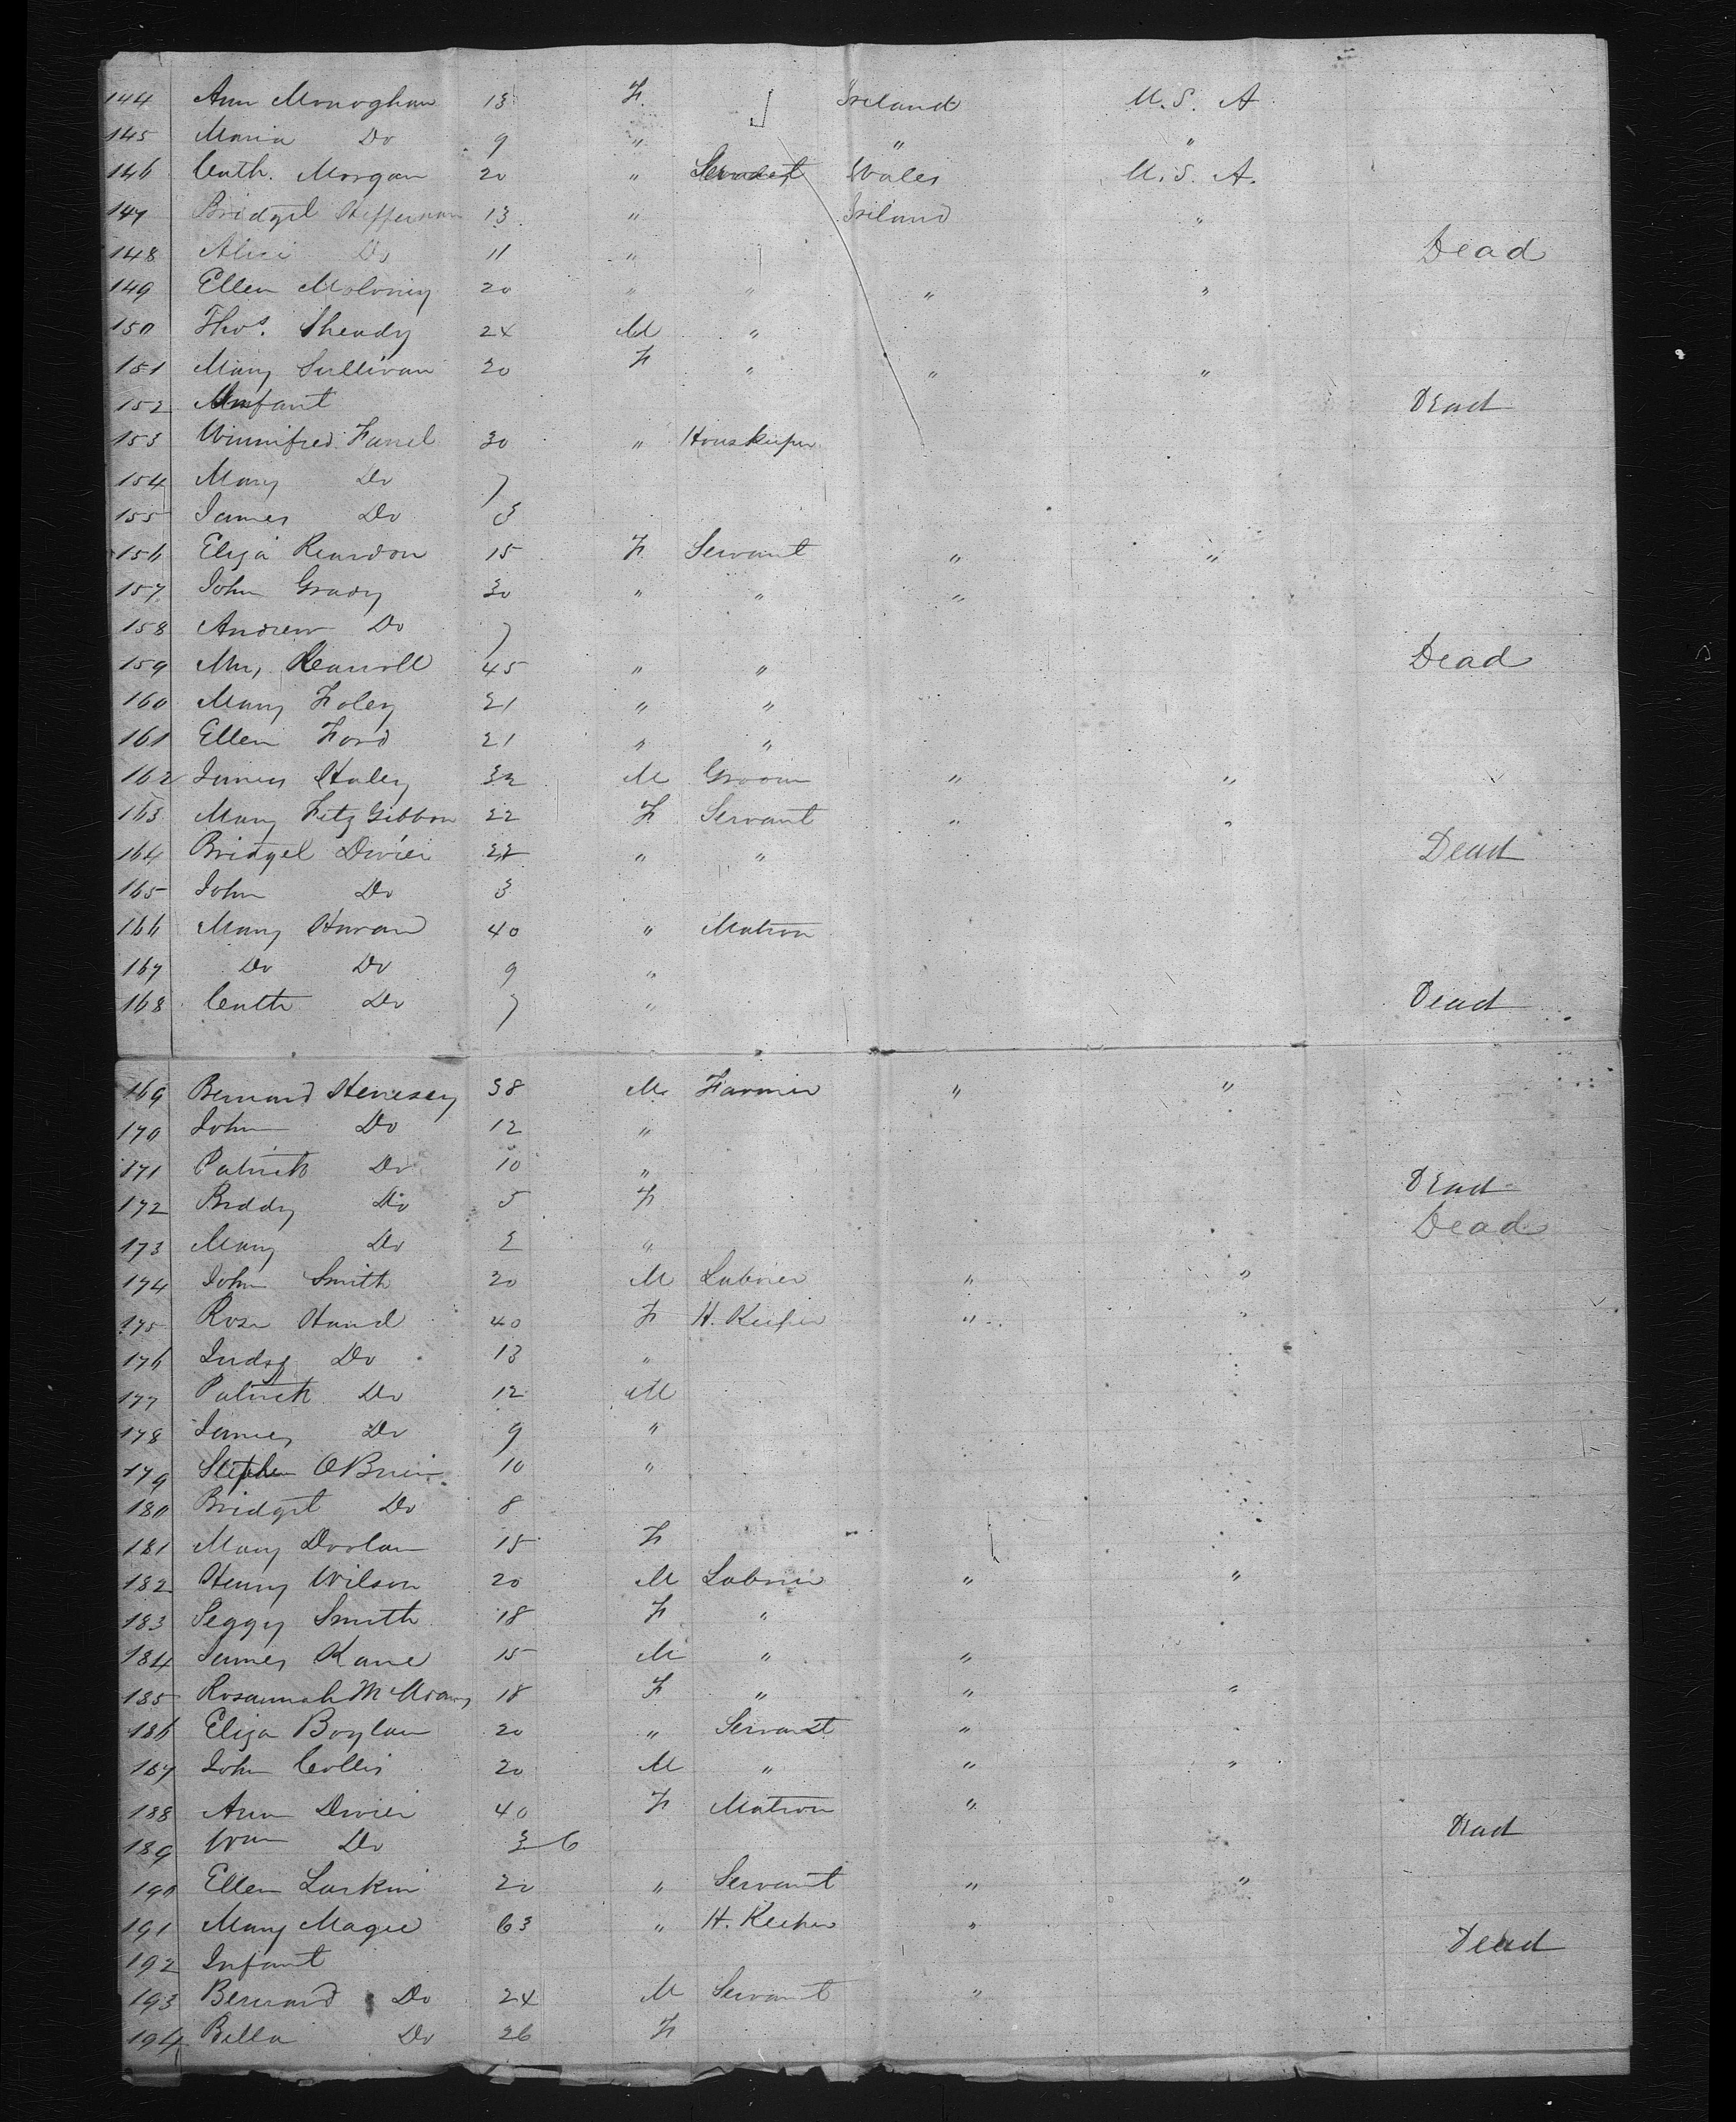 144 Ann Monoghan 13 F. Ireland U.S. A
145 Maria Do 9 " " "
146 Cath. Morgan 20 " Servant Wales U.S. A.
147 Bridget Heffernan 13 " Ireland "
148 Alice Do 11 " Dead
149 Ellen Moloney 20 " " " "
150 Thos. Sheady 24 M "
151 Mary Sullivan 20 F " " "
152 Infant Dead
153 Winnifred Farrel 30 " Houskeeper
154 Mary Do 7
155 James Do 3
156 Eliza Reardon 15 F Servant " "
157 John Grady 30 " " "
158 Andrew Do 7
159 Mrs Carroll 45 " " Dead
160 Mary Foley 21 " "
161 Ellen Ford 21 " "
162 James Haley 32 M Groom " "
163 Mary Fitz Gibbon 22 F Servant " "
164 Bridget Dwier 22 " " Dead
165 John Do 3
166 Mary Horan 40 " Matron
167 Do Do 9 "
168 Cath Do 7 " Dead
169 Bernard Henesey 38 M Farmer " "
170 John Do 12 "
171 Patrick Do 10 "
172 Biddy Do 5 F Dead
173 Mary Do 2 " Dead
174 John Smith 20 M Laborer " "
175 Rose Hand 40 F H. Keeper " "
176 Judy Do 13 "
177 Patrick Do 12 M
178 James Do 9 "
179 Stephen OBrien 10 "
180 Bridget Do 8
181 Mary Doolan 15 F
182 Henry Wilson 20 M Laborer " "
183 Peggy Smith 18 F "
184 James Kane 15 M " "
185 Rosannah 18 F " " "
186 Eliza Boylan 20 " Servant "
187 John Collis 20 M " " "
188 Ann Dwier 40 F Matron "
189 Wm Do 3 6 Dead
190 Ellen Larkin 20 " Servant " "
191 Mary Magee 63 " H. Keeper "
192 Infant Dead
193 Bernard Do 24 M Servant "
194 Bella Do 26 F